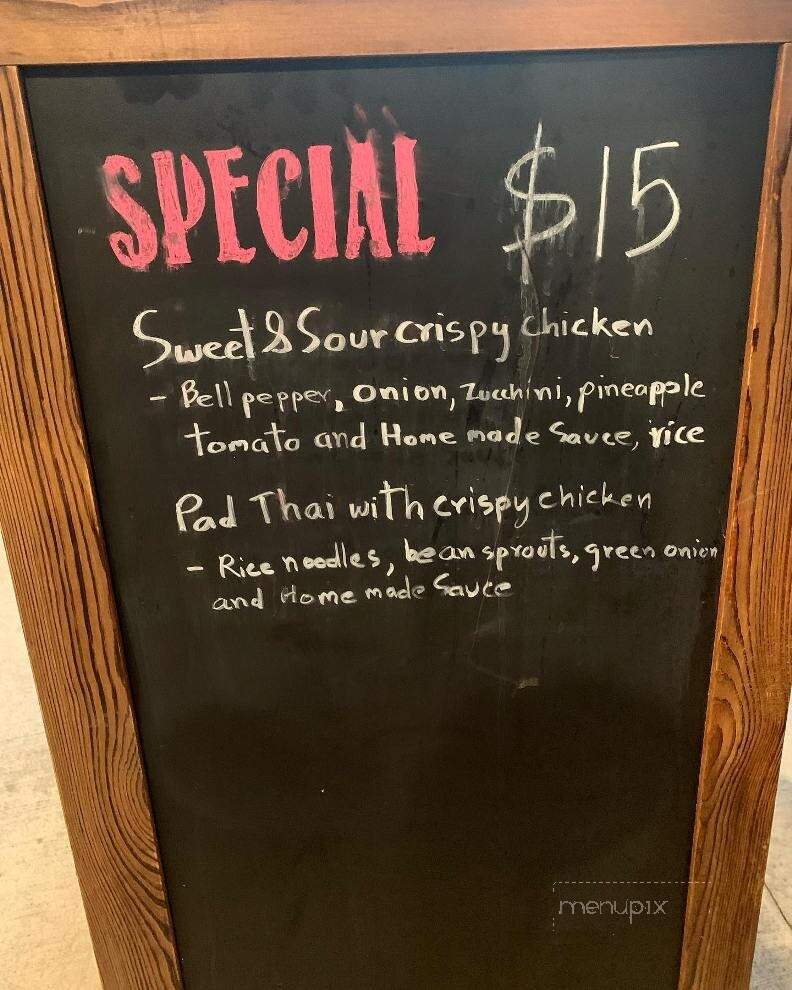 SPECIAL $15
Sweet & Sour crispy chicken
- Bell pepper, onion, zucchini, pineapple
tomato and Home made Sauce, rice
Pad Thai with crispy chicken
- Rice noodles, bean sprouts, green onion
and Home made Sauce
menupix